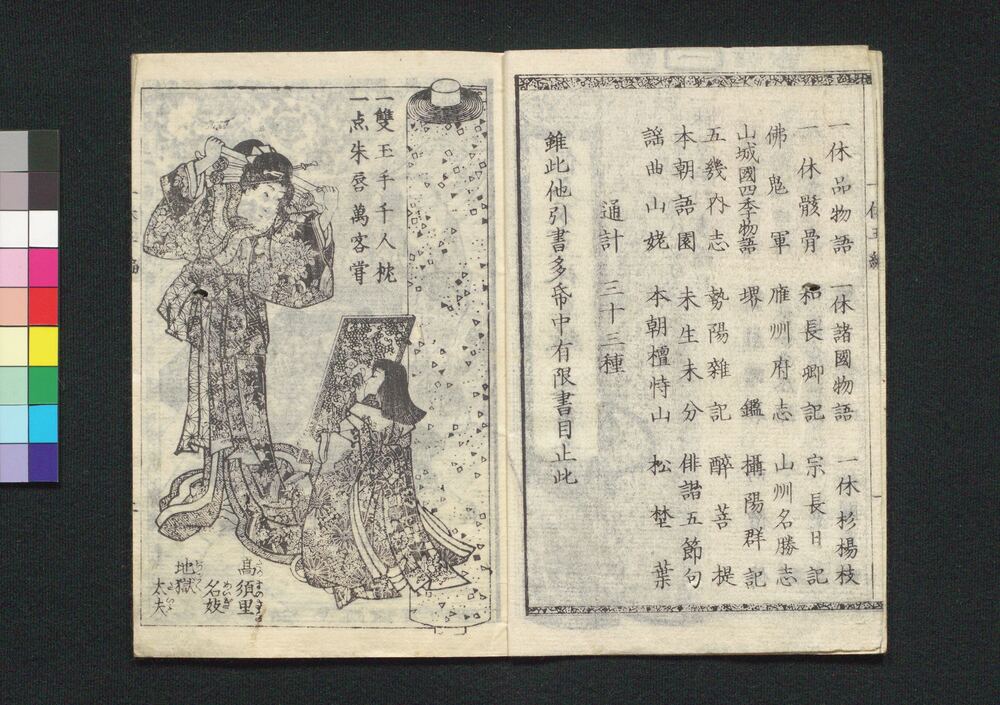 一休品物語　一休諸國物語　一休杉楊枝
一休骸骨　和長卿記　宗長日記
佛鬼軍　雍州府志　山州名勝志
山城國四季物語　堺鑑　攝陽群記
五幾内志　勢陽雜記　醉菩提
本朝語園　未生未分　俳諧五節句
謡曲山姥　本朝檀特山　松埜葉
通計　三十三種
雖此他引書多帋中有限書目止此
一雙玉手千人枕
一点朱唇萬客嘗
高須里
名妓
地獄
太夫